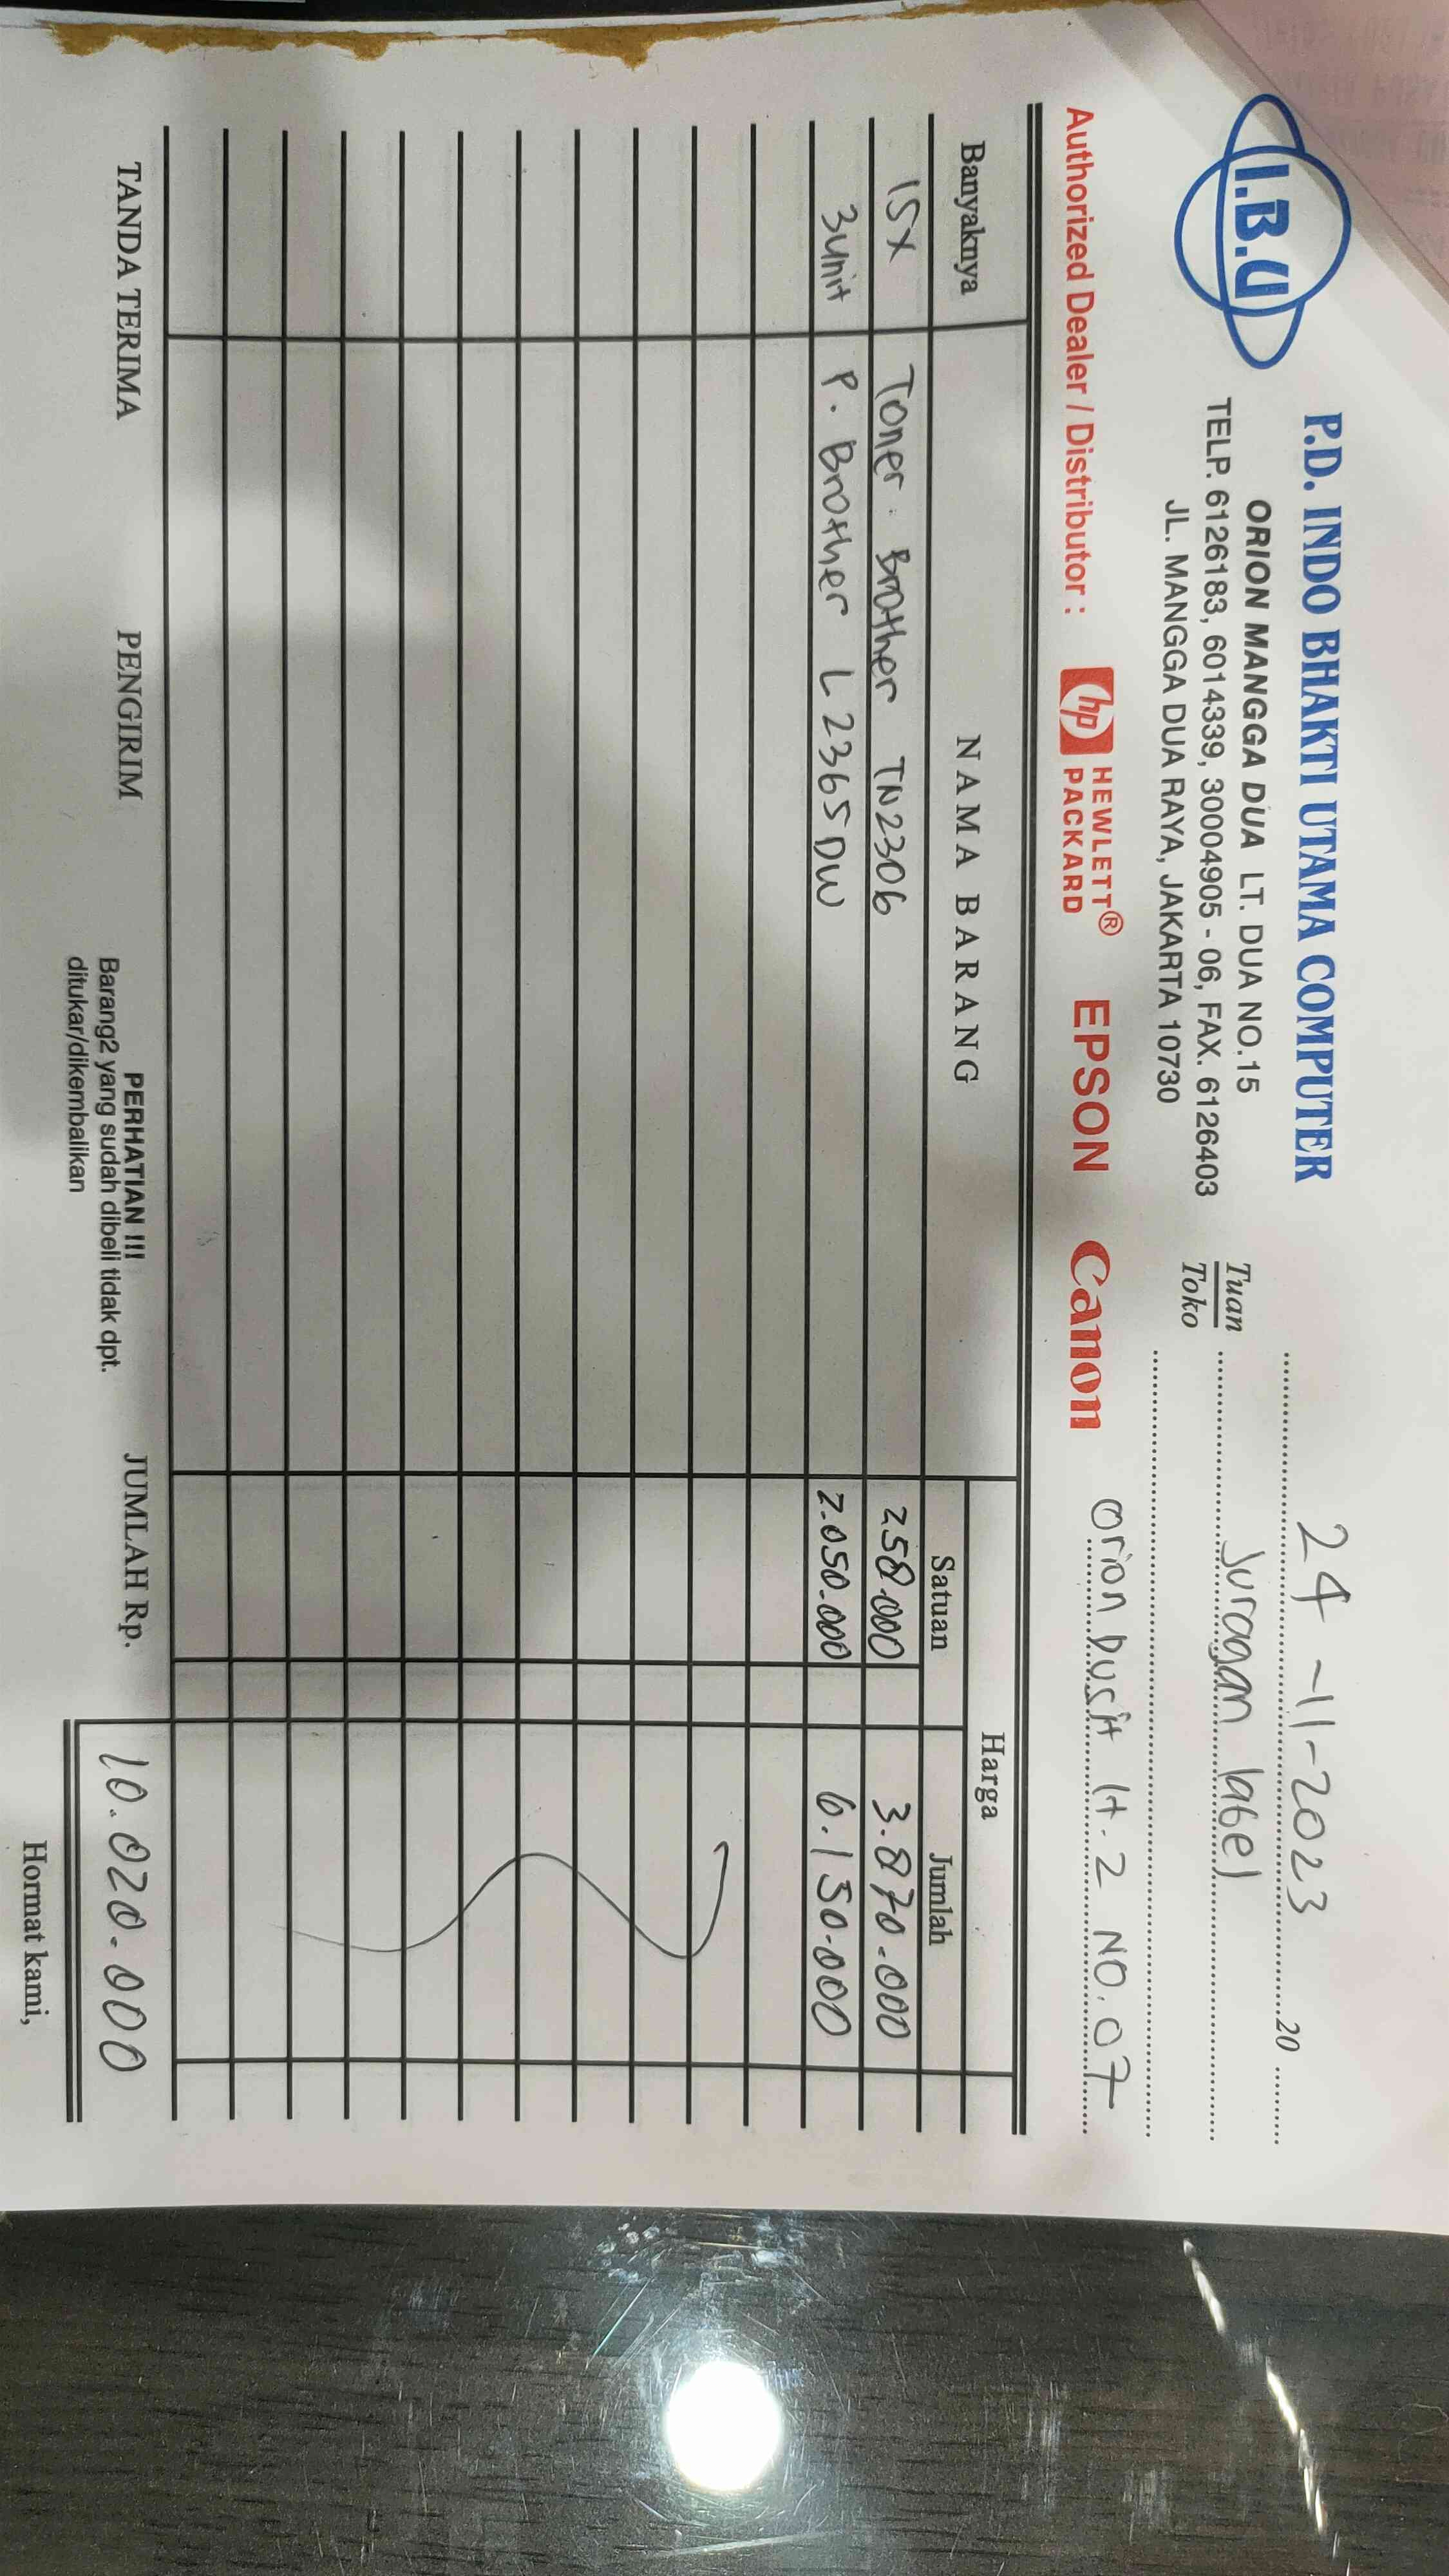 I.B.U
P.D. INDO BHAKTI UTAMA COMPUTER
ORION MANGGA DUA LT. DUA NO.15
TELP. 6126183, 6014339, 30004905 - 06, FAX. 6126403
JL. MANGGA DUA RAYA, JAKARTA 10730
24-11-2023 20
Tuan Juragan label
Toko
Orion Dusit lt.2 NO.07
Authorized Dealer / Distributor : hp HEWLETT® PACKARD EPSON Canon
Banyaknya NAMA BARANG Harga
Satuan Jumlah
15x Toner Brother TN2306 258.000 3.870.000
3unit P. Brother L2365DW 2.050.000 6.150.000
TANDA TERIMA PENGIRIM PERHATIAN !!! JUMLAH Rp. 10.020.000
Barang2 yang sudah dibeli tidak dpt.
ditukar/dikembalikan
Hormat kami,